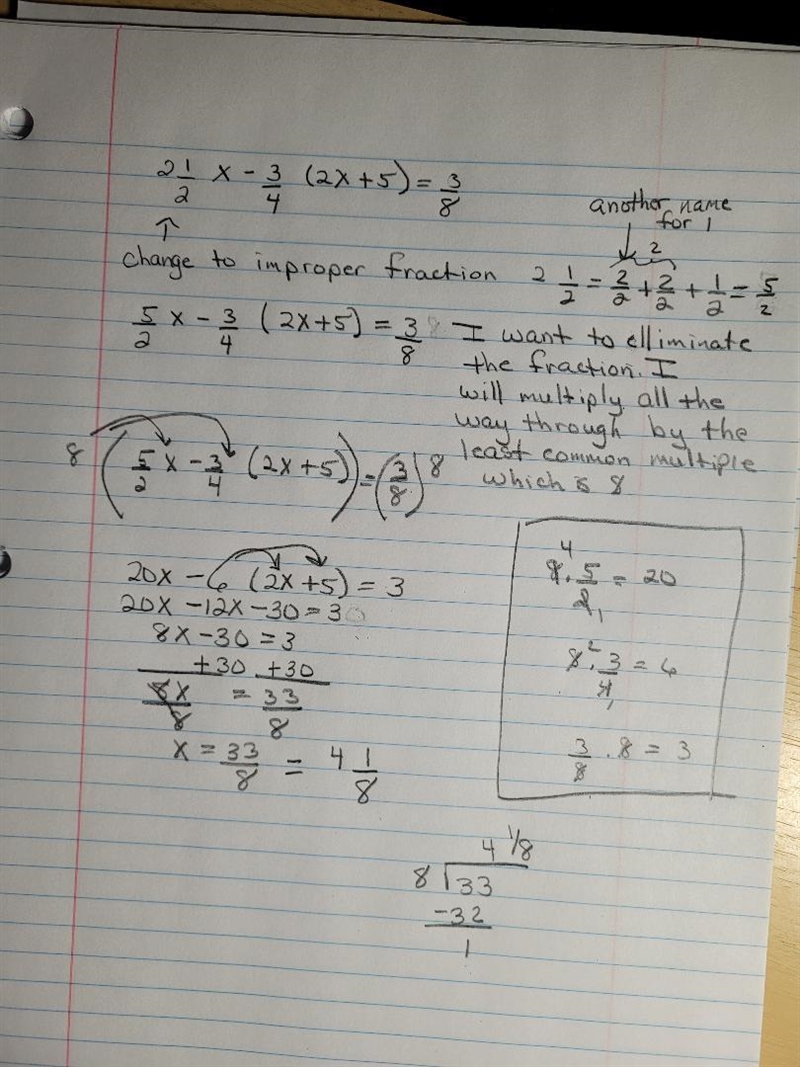 2 1/2 x - 3/4 (2x+5) = 3/8
↑
change to improper fraction
another name
for 1
2
2 1/2 = 2/2 + 2/2 + 1/2 = 5/2
5/2 x - 3/4 (2x+5) = 3/8
I want to elliminate
the fraction. I
will multiply all the
way through by the
least common multiple
which is 8
8 (5/2 x - 3/4 (2x+5)) = (3/8) 8
20x - 6 (2x+5) = 3
20x - 12x - 30 = 3
8x - 30 = 3
+30 +30
8x/8 = 33/8
x = 33/8 = 4 1/8
4
8 · 5/2 = 20
1
2
8 · 3/4 = 6
1
3/8 · 8 = 3
4 1/8
8 √33
-32
1